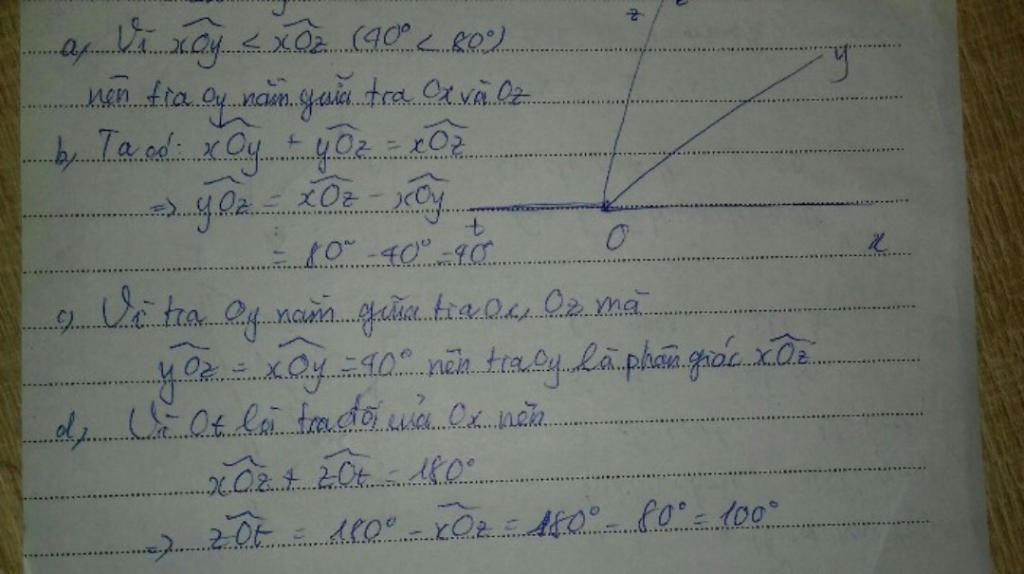 a, Vì xOy < xOz (40° < 80°)
nên tia Oy nằm giữa tia Ox và Oz
b, Ta có: xOy + yOz = xOz
=> yOz = xOz - xOy
= 80° - 40° = 40°
c, Vì tia Oy nằm giữa tia Ox, Oz mà
yOz = xOy = 40° nên tia Oy là phân giác xOz
d, Vì Ot là tia đối của Ox nên
xOz + zOt = 180°
=> zOt = 180° - xOz = 180° - 80° = 100°
z
y
t
O
x